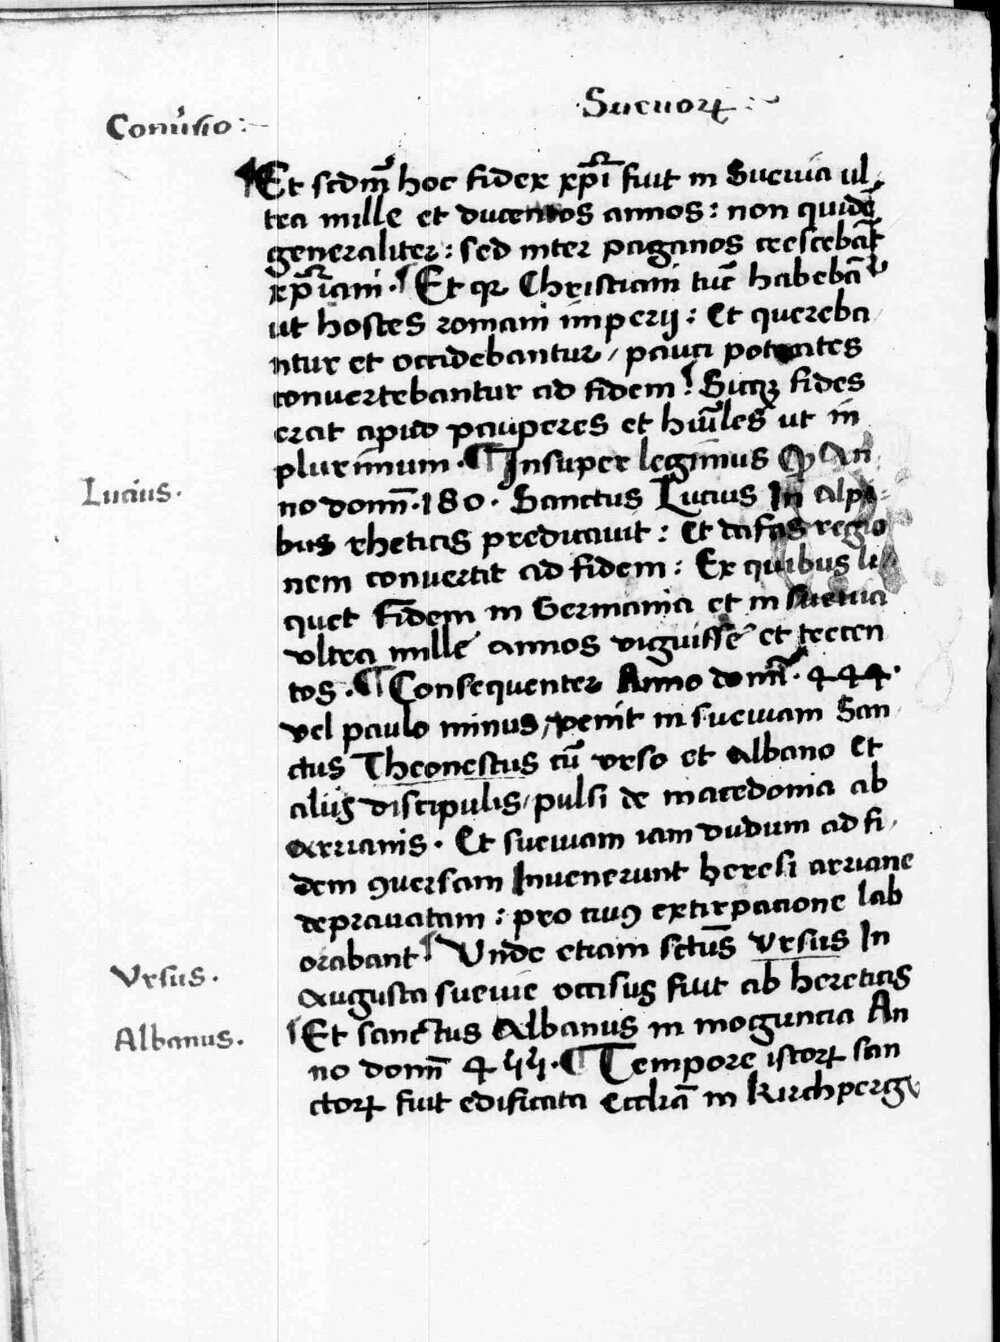 Conu̓sio:
Sueuorꝝ:
¶Et scdm̄ hoc fidex xp̄i fuit in Sueuia ul
tra mille et ducentos annos: non quidē
generaliter: sed inter paganos crescebāt
xp̄iani. ¶Et qꝛ Christiani tūc habebāt
ut hostes romani imperij: Et quereba
ntur et occidebantur, pauci potentes
conuertebantur ad fidem ¶Sicqꝫ fides
erat apud pauperes et hūiles ut in
plurimum. ¶Insuper legimus ꝙ An
no domī. 180. Sanctus Lucius In alpi
bus rheticis predicauit: Et casas regio
nem conuertit ad fidem: Ex quibus li
quet Fidem in Germania et in sueuia
vltra mille annos viguisse et trecen
tos. ¶Consequenter Anno domī. 444.
vel paulo minus, venit in sueuiam San
ctus Theonestus cū vrso et Albano Et
alijs discipulis, pulsi de macedonia ab
arrianis. Et sueuiam iam dudum ad fi
dem ꝯuersam Inuenerunt heresi arriane
deprauatam: pro cuiꝯ extirpatione lab
orabant ¶Vnde etiam sctūs Vrsus In
augusta sueuie occisus fuit ab hereticis
¶Et sanctus Albanus in moguncia An
no domī 455. ¶Tempore istorꝝ san
ctorꝝ fuit edificata Eccliā in kirchperg
Lucius.
Vrsus.
Albanus.